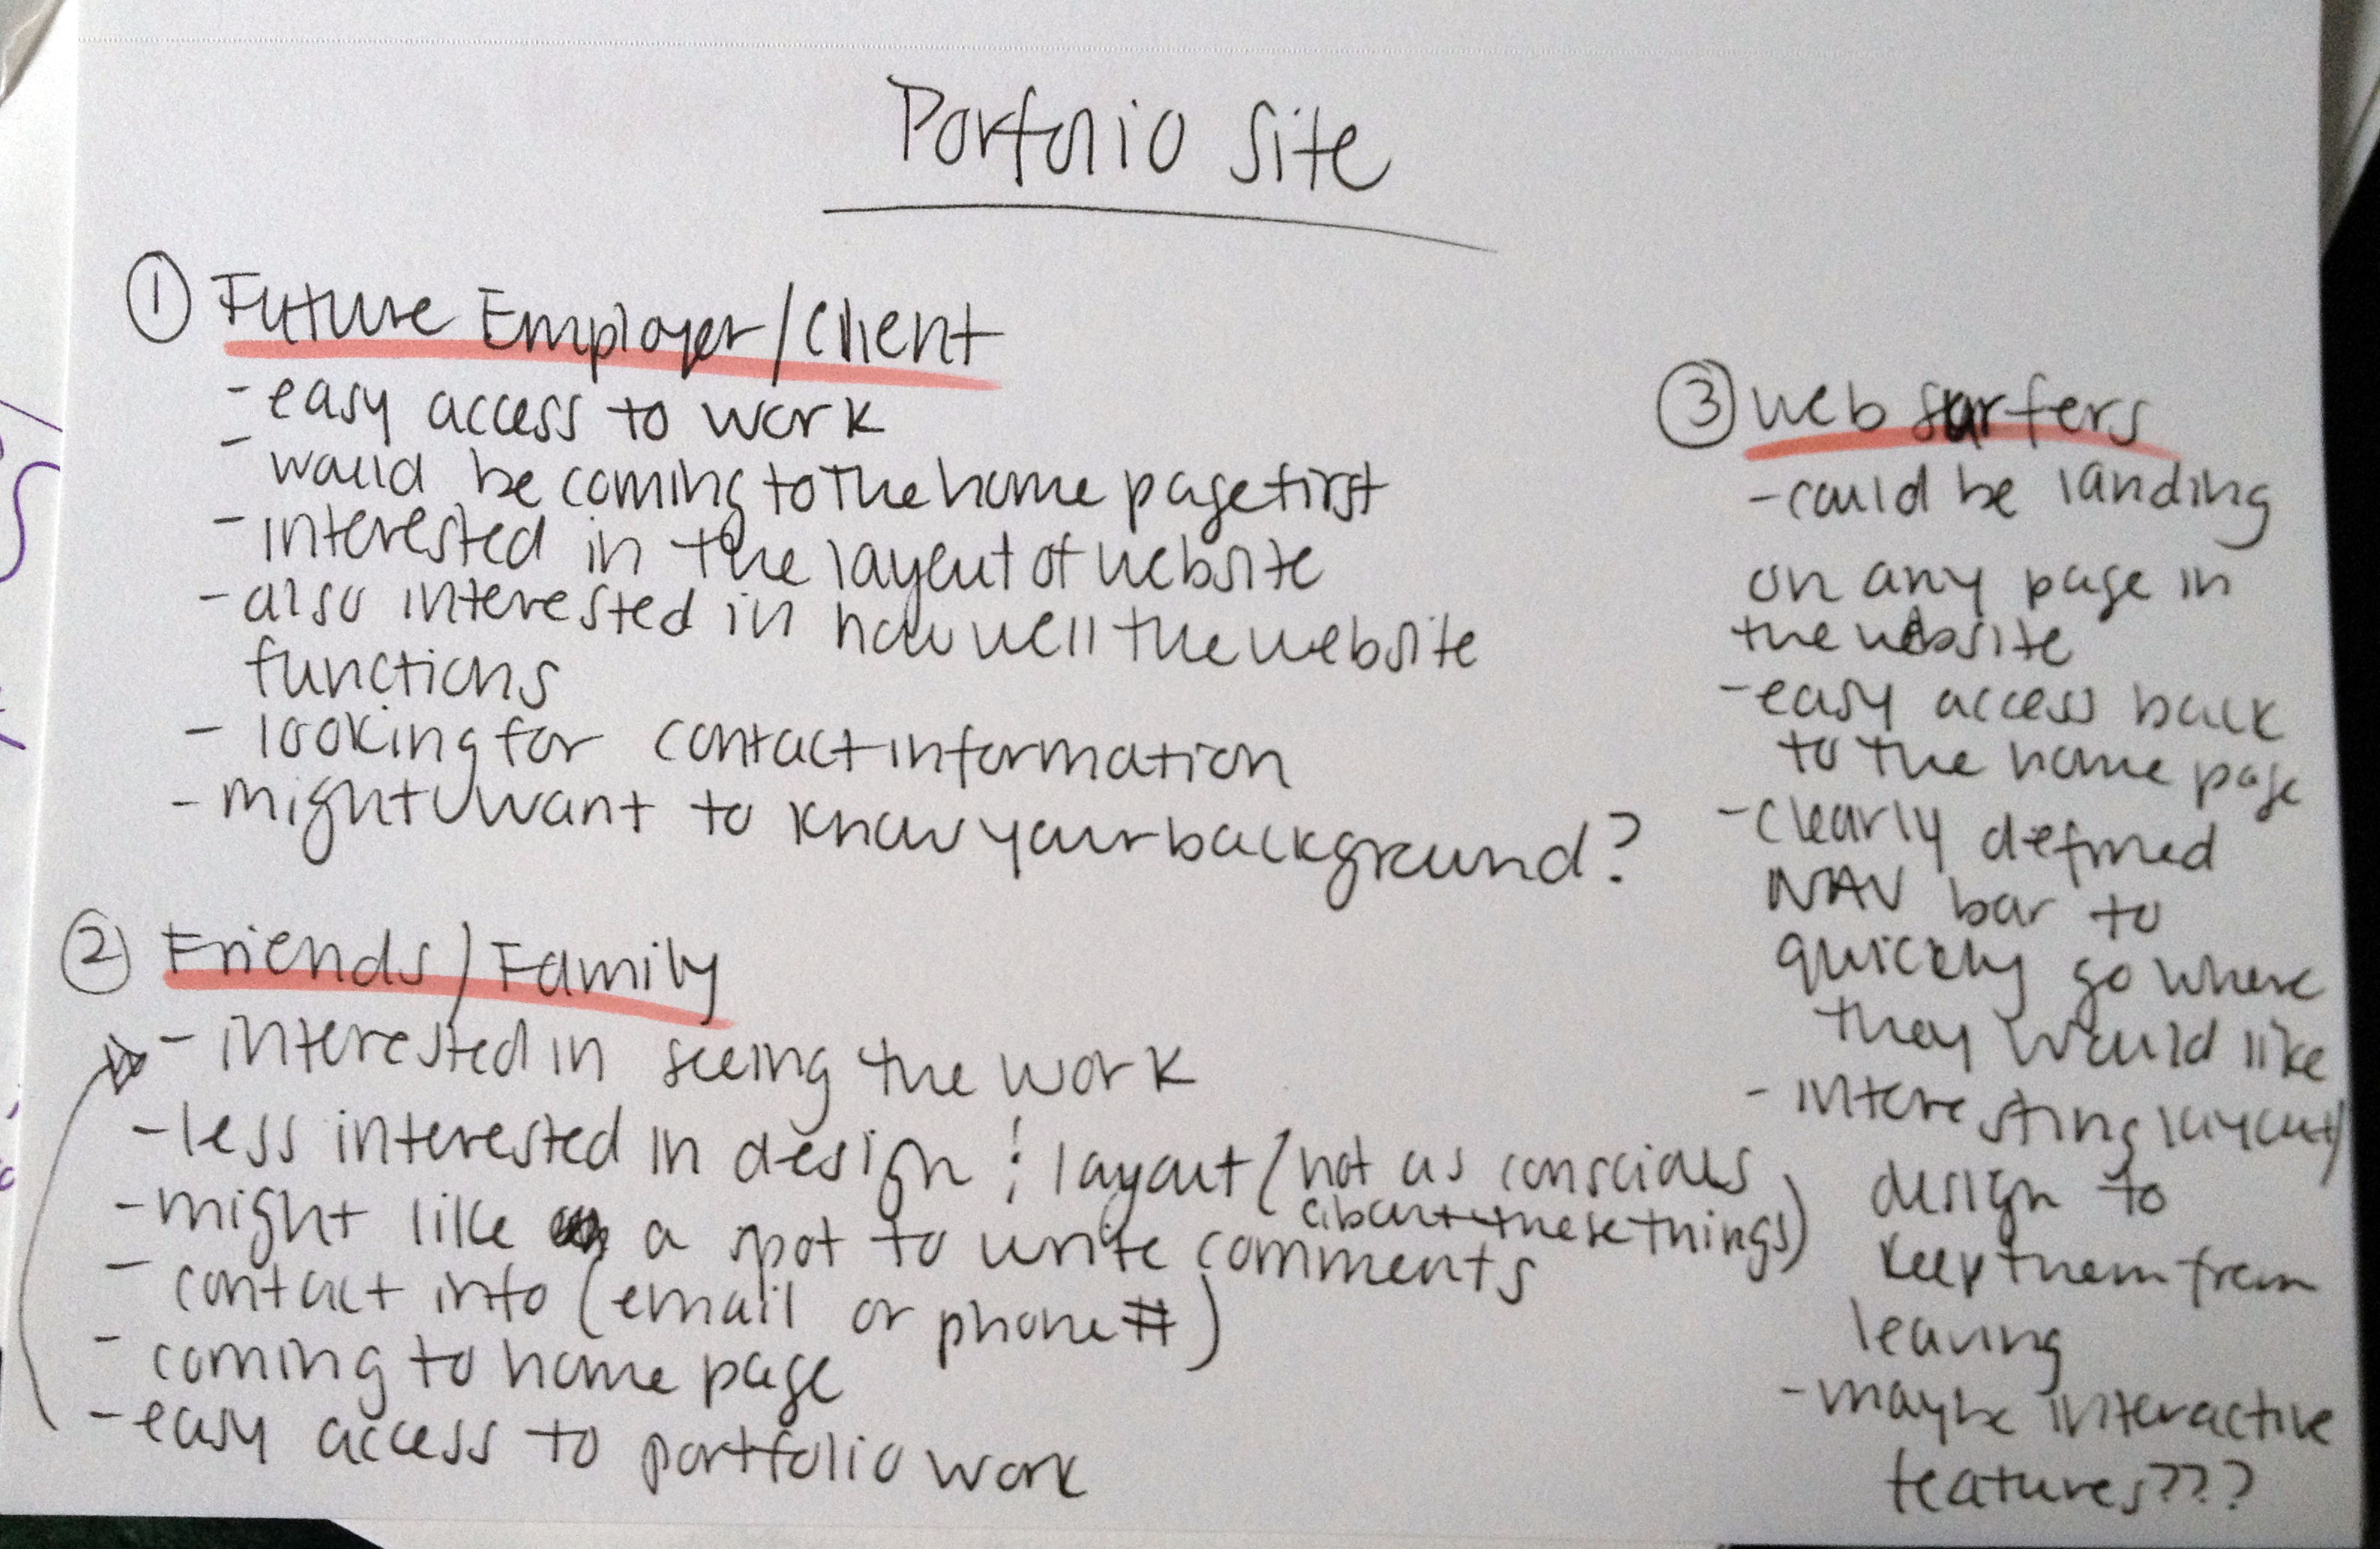 Porfolio Site
① Future Employer/Client
- easy access to work
- would be coming to the home page first
- interested in the layout of website
- also interested in how well the website
functions
- looking for contact information
- might want to know your background?
② Friends/Family
- interested in seeing the work
- less interested in design & layout (not as conscious
about these things)
- might like a spot to write comments
- contact info (email or phone #)
- coming to home page
- easy access to portfolio work
③ web surfers
- could be landing
on any page in
the website
- easy access back
to the home page
- clearly defined
NAV bar to
quickly go where
they would like
- interesting layout/
design to
keep them from
leaving
- maybe interactive
features???